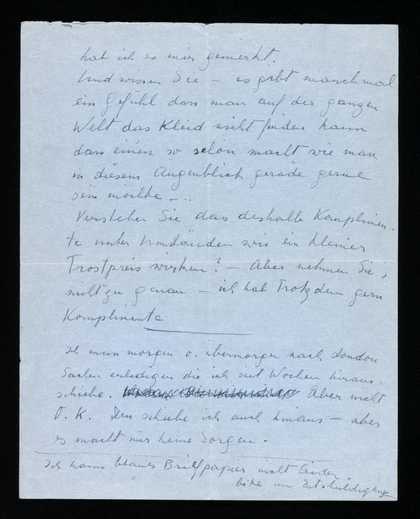 hab ich es mir gemerkt.
Und wissen Sie – es gibt manchmal
ein Gefühl dass man auf der ganzen
Welt das Kleid nicht finden kann
dass einen so schön macht wie man
in diesem Augenblick gerade gerne
sein möchte ...
Verstehen Sie dass deshalb Komplimen-
te unter Umständen wie ein kleiner
Trostpreis wirken? – Aber nehmen Sie's
nicht zu genau – ich hab Trotzdem gern
Komplimente
Ich muss morgen o. übermorgen nach London
Sachen erledigen die ich seit Wochen hinaus-
schiebe. Aber nicht
O.K. Den schiebe ich auch hinaus – aber
es macht mir keine Sorgen.
Ich kann blaues Briefpapier nicht finden
bitte um Entschuldigung